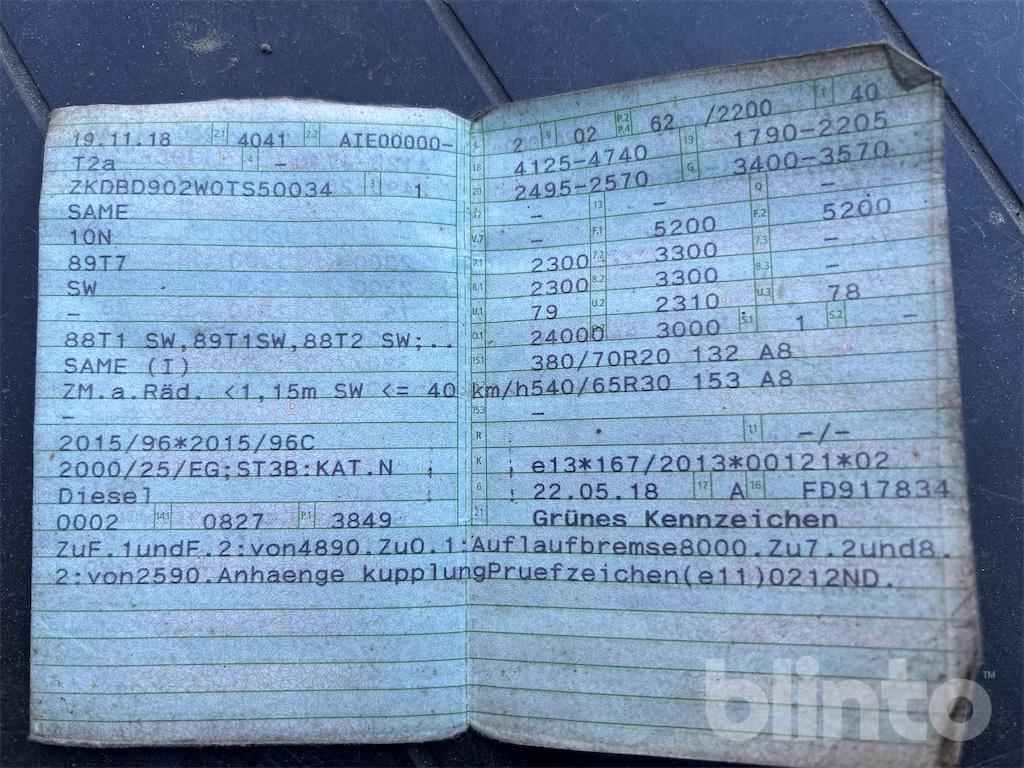 19.11.18 2.1 4041 2.2 AIE00000-
T2a 4 -
ZKDBD902W0TS50034 3 1
SAME
10N
89T7
SW
-
88T1 SW,89T1SW,88T2 SW;..
SAME (I)
ZM.a.Räd. <1,15m SW <= 40 km/h
-
2015/96*2015/96C
2000/25/EG;ST3B:KAT.N ;
Diesel ;
0002 14.1 0827 P.1 3849
L 2 9 02 P.2 P.4 62 /2200 T 40
18 4125-4740 19 1790-2205
20 2495-2570 G 3400-3570
12 - 13 - Q -
V.7 - F.1 5200 F.2 5200
7.1 2300 7.2 3300 7.3 -
8.1 2300 8.2 3300 8.3 -
U.1 79 U.2 2310 U.3 78
O.1 24000 3000 S.1 1 S.2 -
15.1 380/70R20 132 A8
540/65R30 153 A8
15.3 -
R 11 -/-
K ; e13*167/2013*00121*02
6 ; 22.05.18 17 A 16 FD917834
21 Grünes Kennzeichen
ZuF.1undF.2:von4890.ZuO.1:Auflaufbremse8000.Zu7.2und8.
2:von2590.Anhaenge kupplungPruefzeichen(e11)0212ND.
blinto™